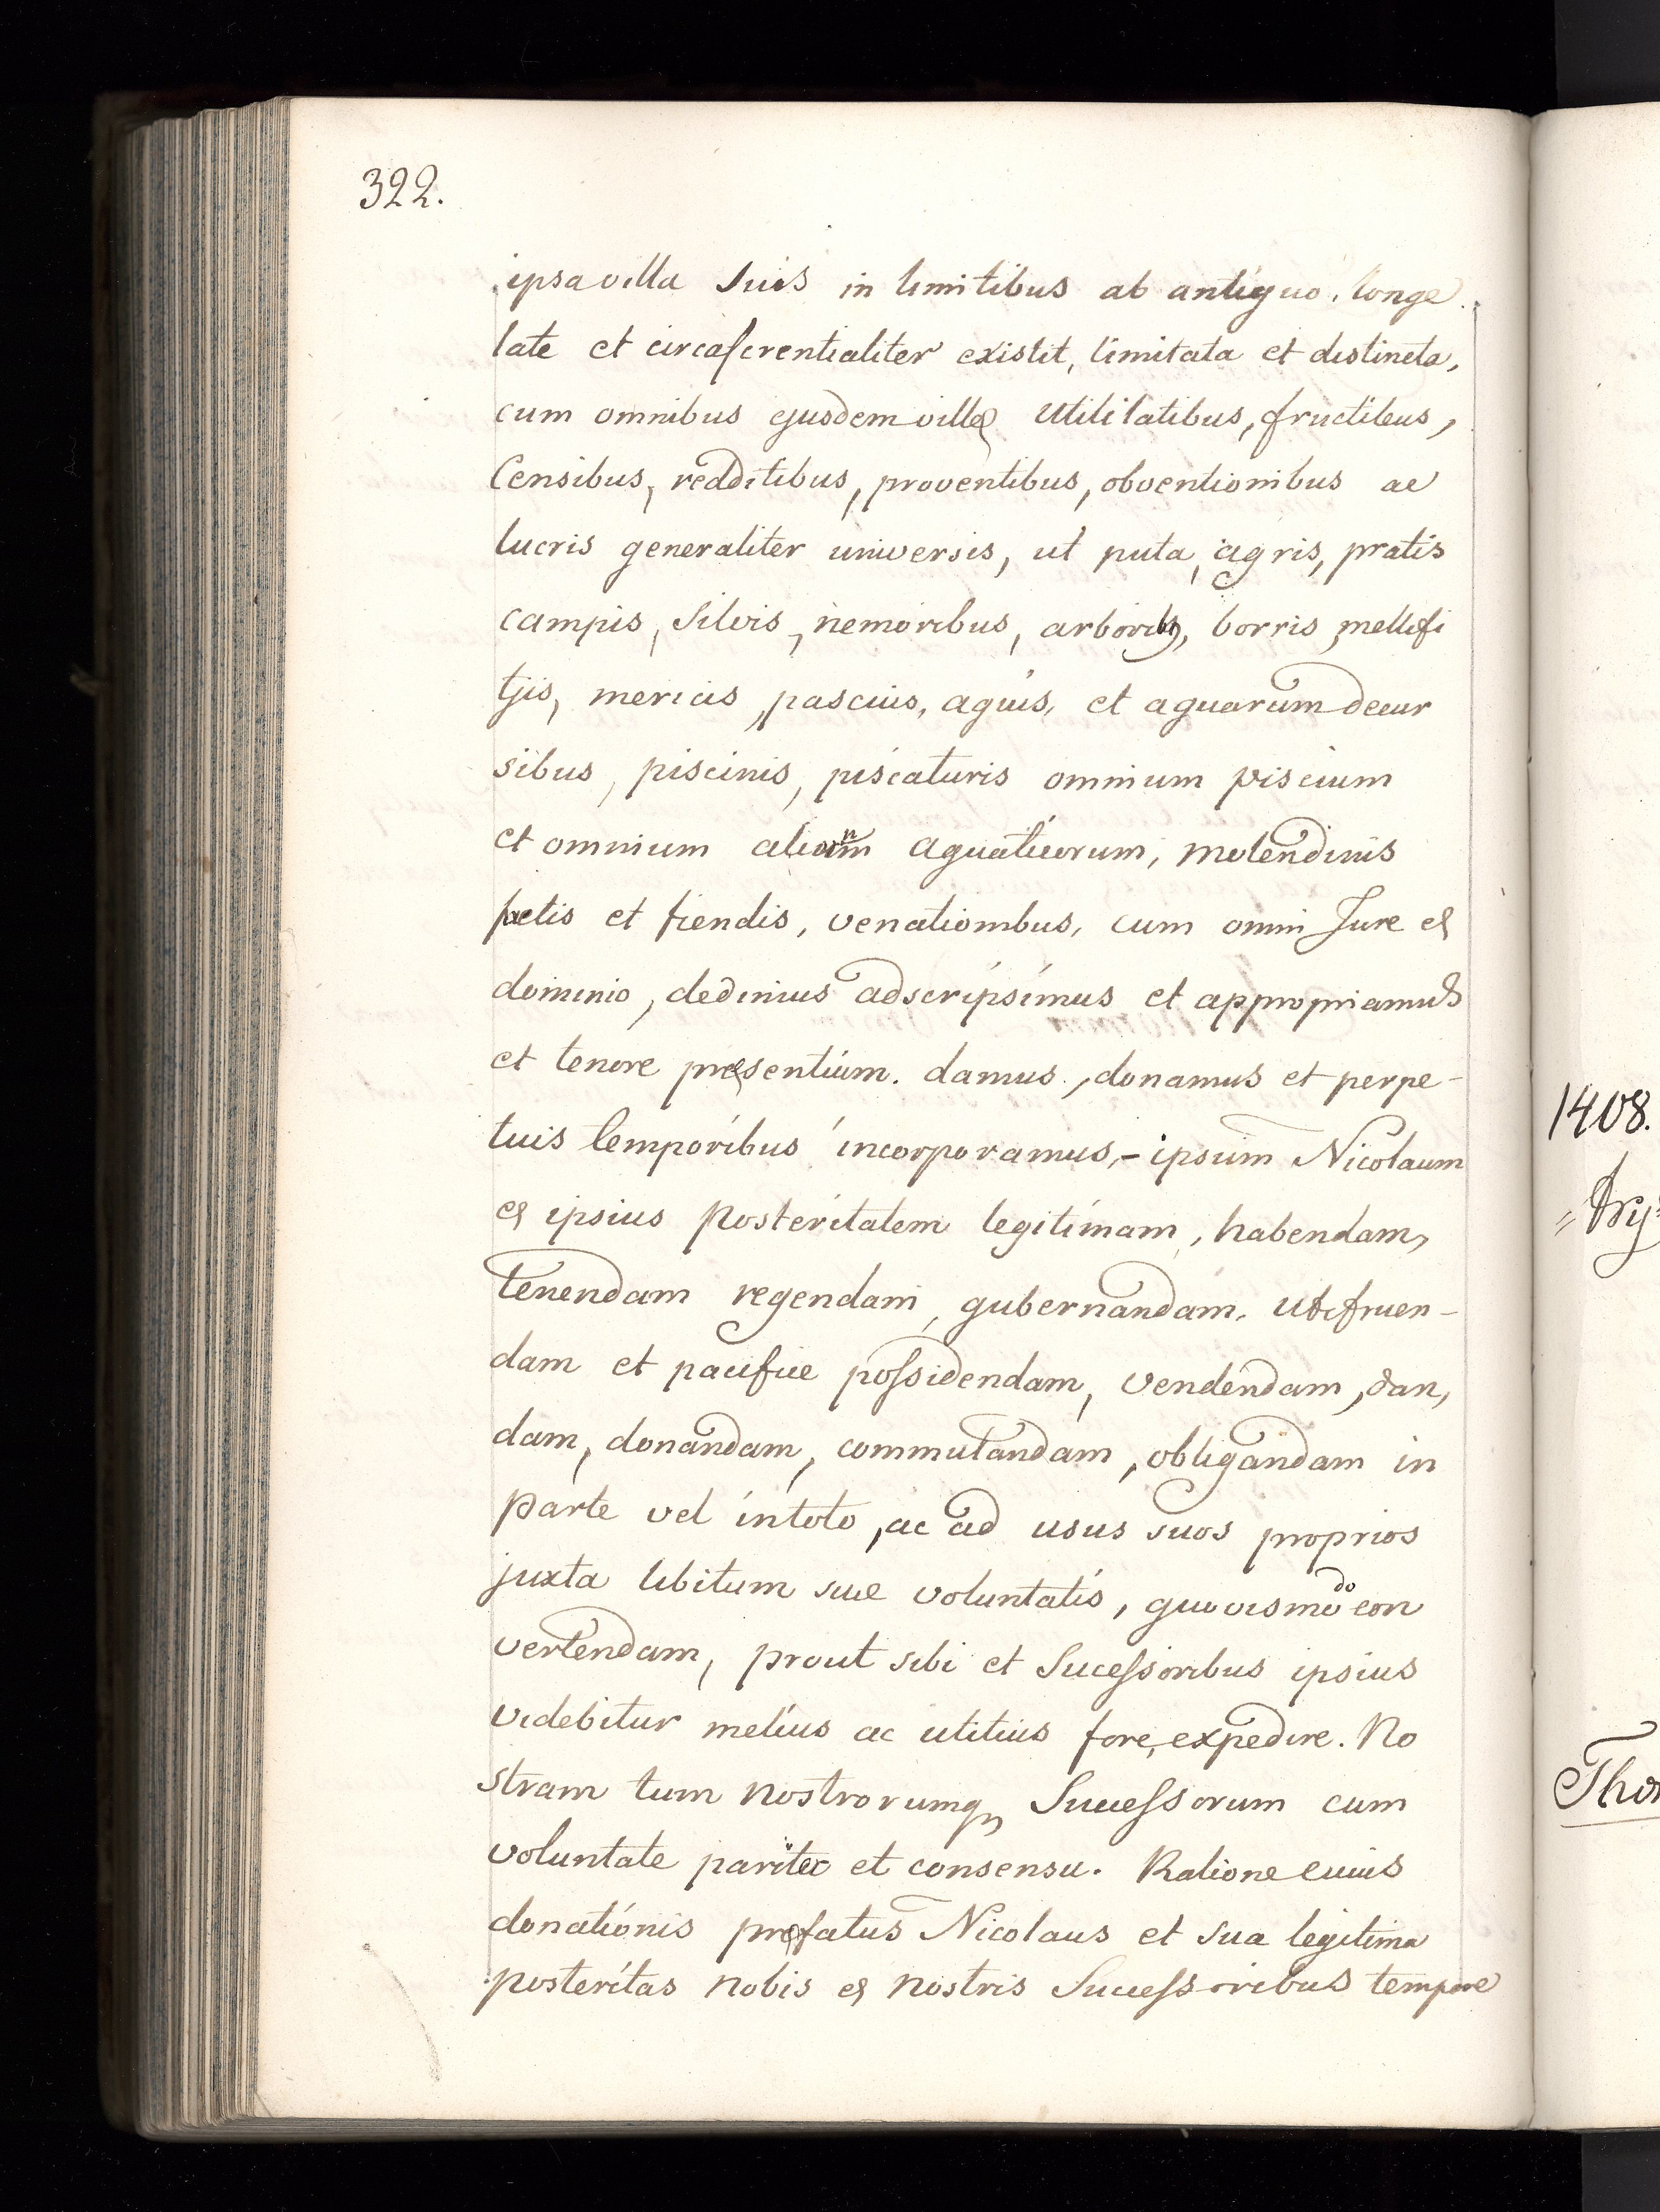 322.
ipsa villa suis in limitibus ab antiquo, longe
late et circaferentialiter existit, limitata et distincta,
cum omnibus ejusdem villę utilitatibus, fructibus,
Censibus, redditibus, proventibus, obventionibus ac
lucris generaliter universis, ut puta, agris, pratis
campis, silvis, nemoribus, arboribq, borris, mellifi
tjis, mericis, pascuis, aquis, et aquarum decur
sibus, piscinis, piscaturis omnium piscium
et omnium aquaticorum, molendinis
factis et fiendis, venationibus, cum omni Jure et
dominio, dedimus adscripsimus et appropriamus
et tenore pręsentium. damus, donamus et perpe-
tuis temporibus incorporamus,- ipsum Nicolaum
et ipsius posteritatem legitimam, habendam,
tenendam regendam, gubernandam, utifruen-
dam et pacifice possidendam, vendendam, dan,
dam, donandam, commutandam, obligandam in
parte vel intoto, ac ad usus suos proprios
juxta libitum sue voluntatis, quovismodo con
vertendam, prout sibi et Sucessoribus ipsius
videbitur melius ac utilius fore, expedire. No
stram tum nostrorumq, Successorum cum
voluntate pariter et consensu. Ratione cuius
donationis pręfatus Nicolaus et sua legitima
posteritas nobis et nostris Successoribus tempore
1408.
Thor